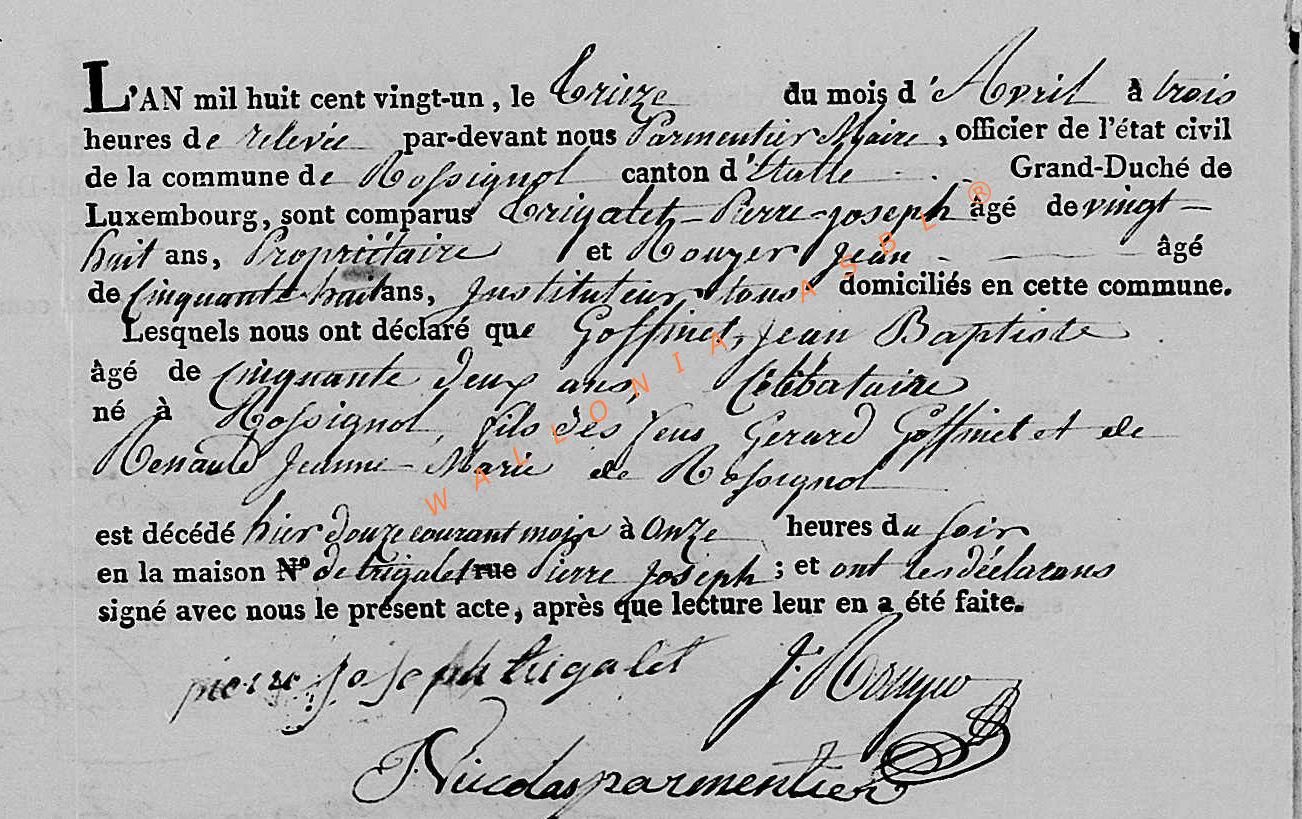 L'AN mil huit cent vingt-un, le treize du mois d'Avril à trois
heures de relevée par-devant nous Parmentier Maire, officier de l'état civil
de la commune de Rossignol canton d'Etalle Grand-Duché de
Luxembourg, sont comparus trigalet - Pierre-joseph âgé de vingt-
huit ans, Propriétaire et Rouyer Jean âgé
de Cinquante-huit ans, Instituteur, tous domiciliés en cette commune.
Lesquels nous ont déclaré que Goffinet, Jean Baptiste
âgé de Cinquante deux ans, Célibataire
né à Rossignol, fils des feus Gerard Goffinet et de
Renauld Jeanne-Marie de Rossignol
est décédé hier douze courant mois à Onze heures du soir
en la maison N° de trigalet rue Pierre Joseph; et ont les déclarans
signé avec nous le présent acte, après que lecture leur en a été faite.
pierre joseph trigalet J. Rouyer
Nicolas parmentier
WALLONIA ASBL ®